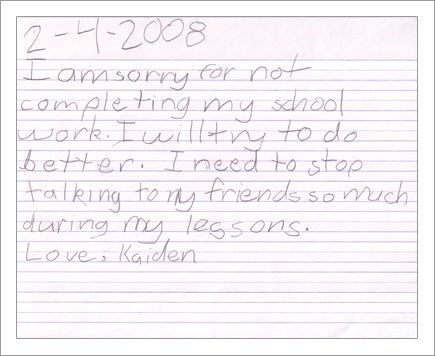 2-4-2008
I am sorry for not
completing my school
work. I will try to do
better. I need to stop
talking to my friends so much
during my lessons.
Love, Kaiden